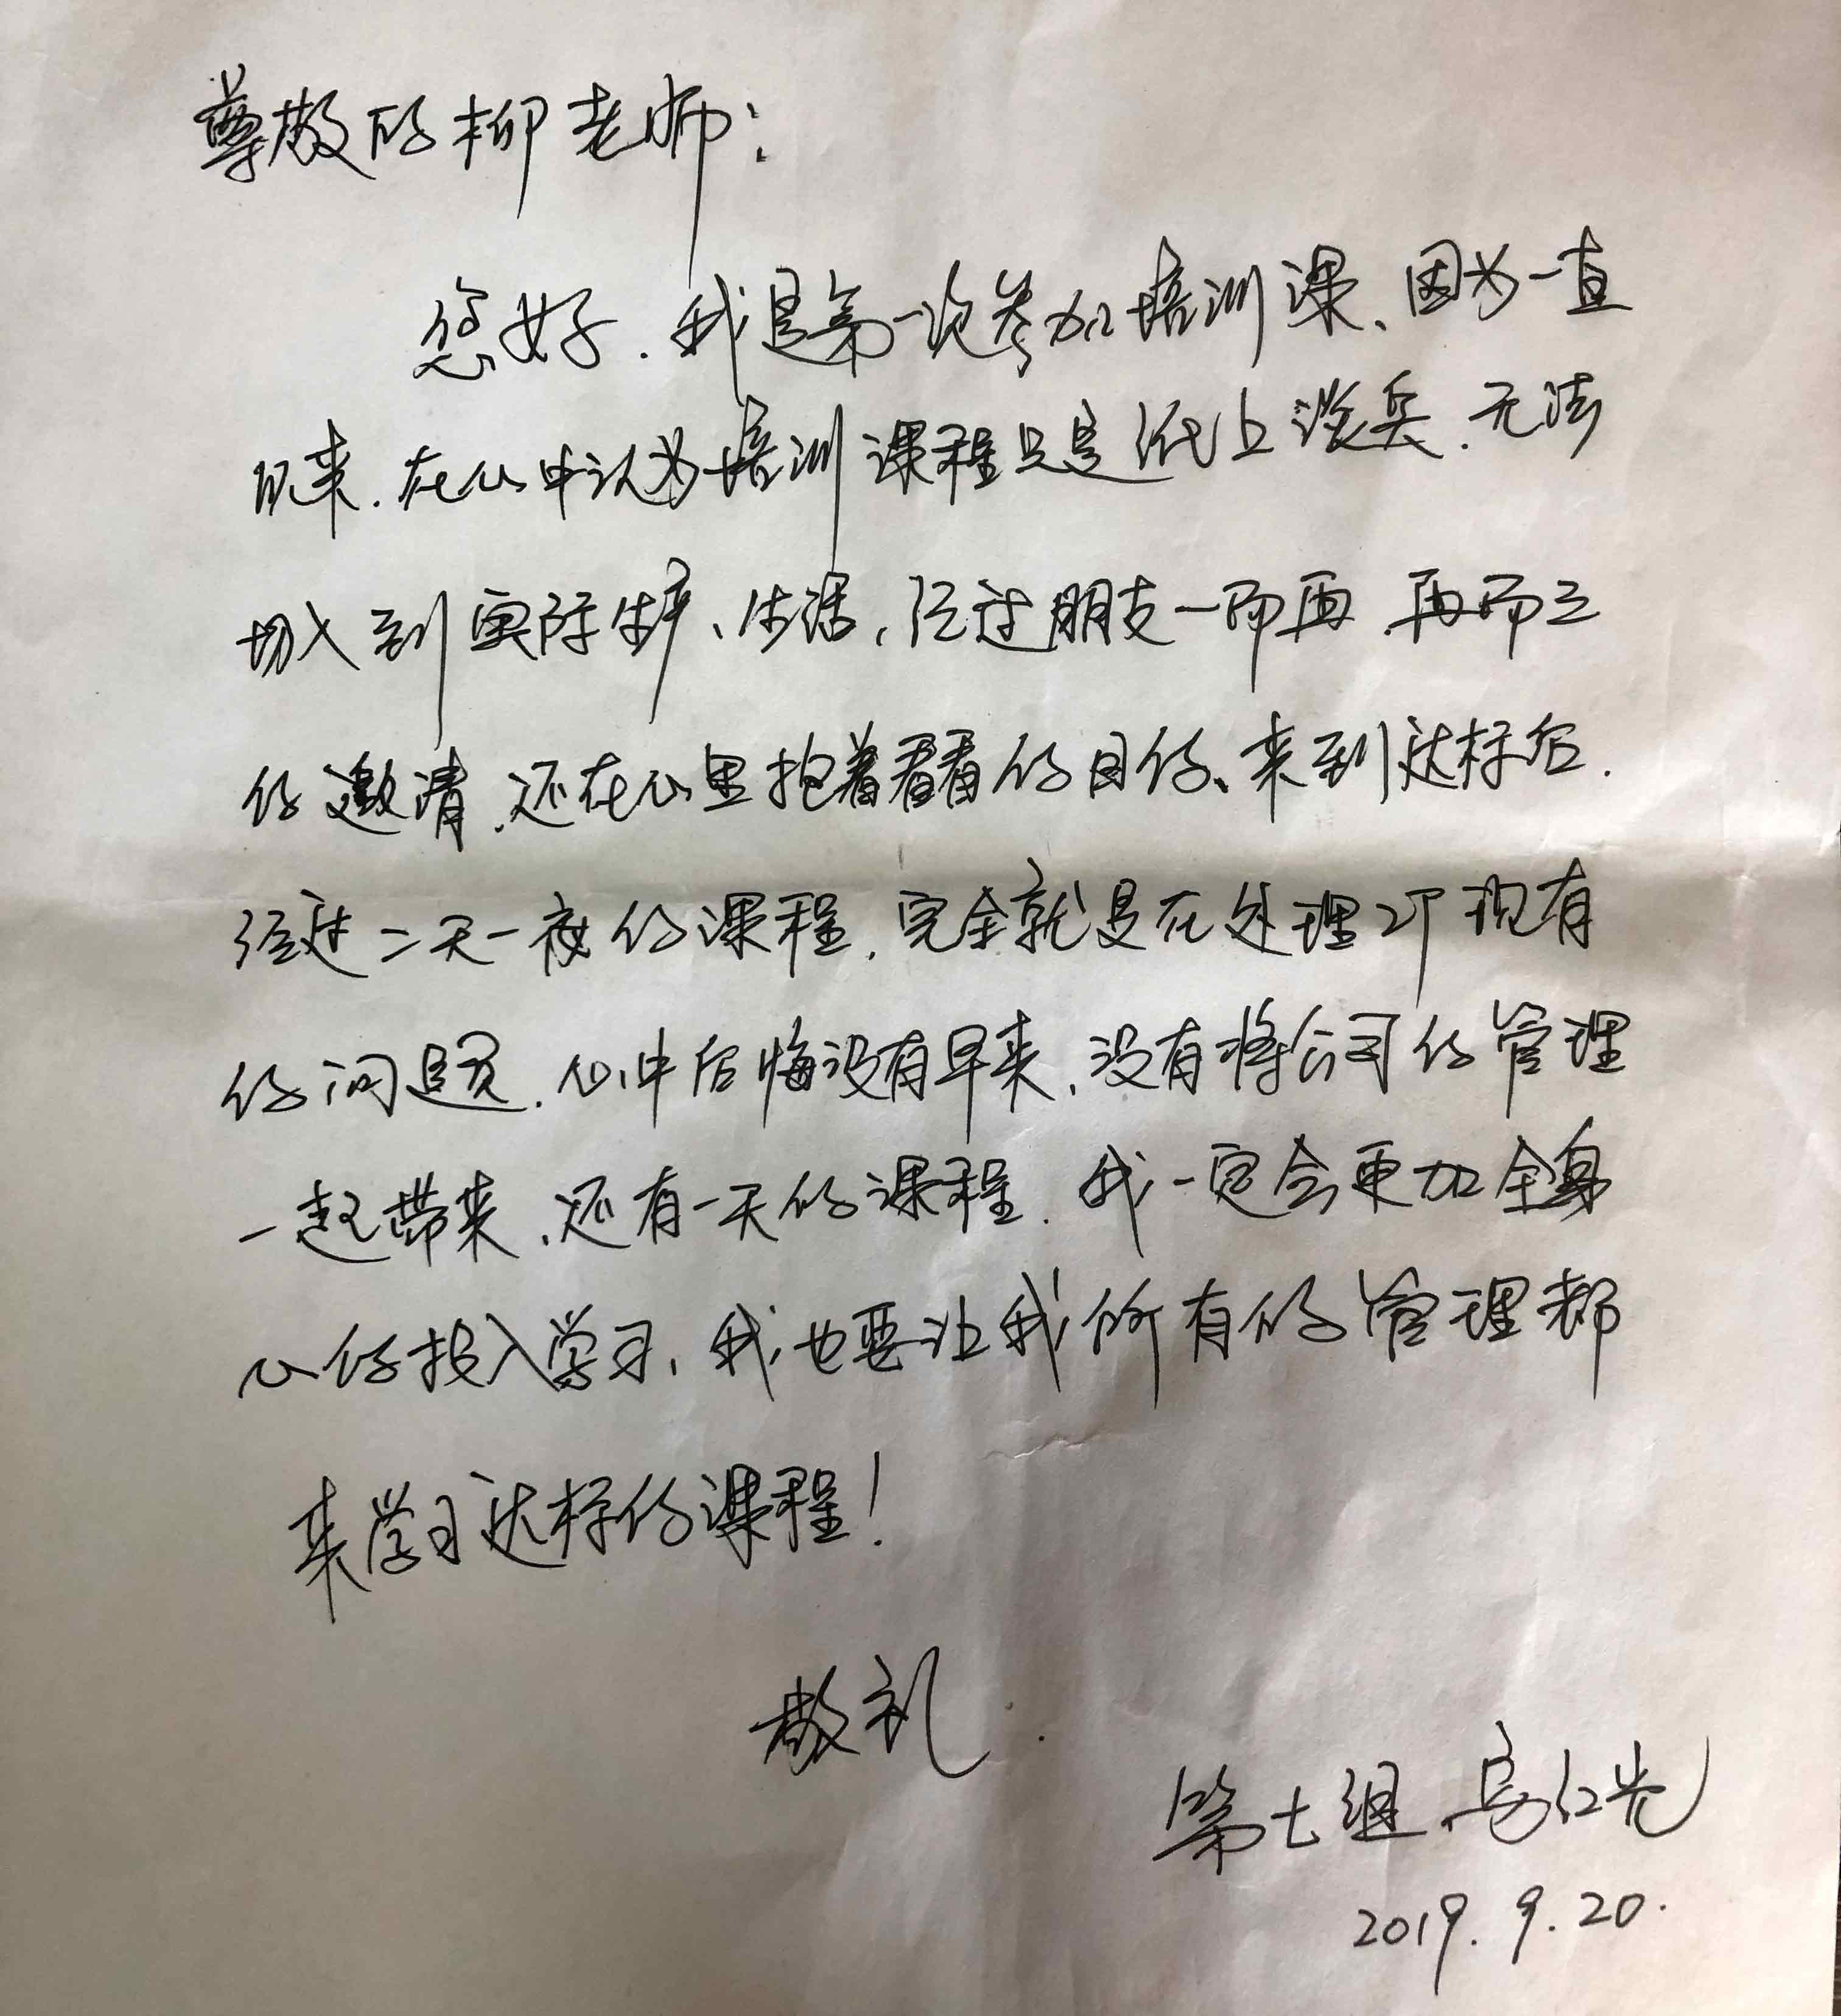 尊敬的柳老师：
您好．我是第一次参加培训课、因为一直
以来．在心中认为培训课程只是纸上谈兵．无法
切入到实际生产、生活，经过朋友一而再．再而三
的邀请．还在心里抱着看看的目的、来到这样后．
经过二天一夜的课程．完全就是在处理我现有
的问题．心中后悔没有早来、没有将公司的管理
一起带来．还有一天的课程．我一定会更加全身
心的投入学习、我也要让我所有的管理都
来学习这样的课程！
敬礼
第七组
2019.9.20.